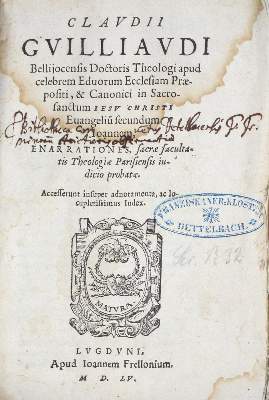 CLAVDII
GVILLIAVDI
Bellijocensis Doctoris Theologi apud
celebrem Eduorum Ecclesiam Præ-
positi, & Canonici in Sacro-
sanctum IESV CHRISTI
Euangeliũ secundum
Ioannem
ENARRATIONES, sacræ faculta-
tis Theologiæ Parisiensis iu-
dicio probatæ.
Accesserunt insuper adnotamenta, ac lo-
cupletissimus Index.
FRANZISKANER-KLOSTER
DETTELBACH.
MATVRA
LVGDVNI,
Apud Ioannem Frellonium.
M. D. LV.